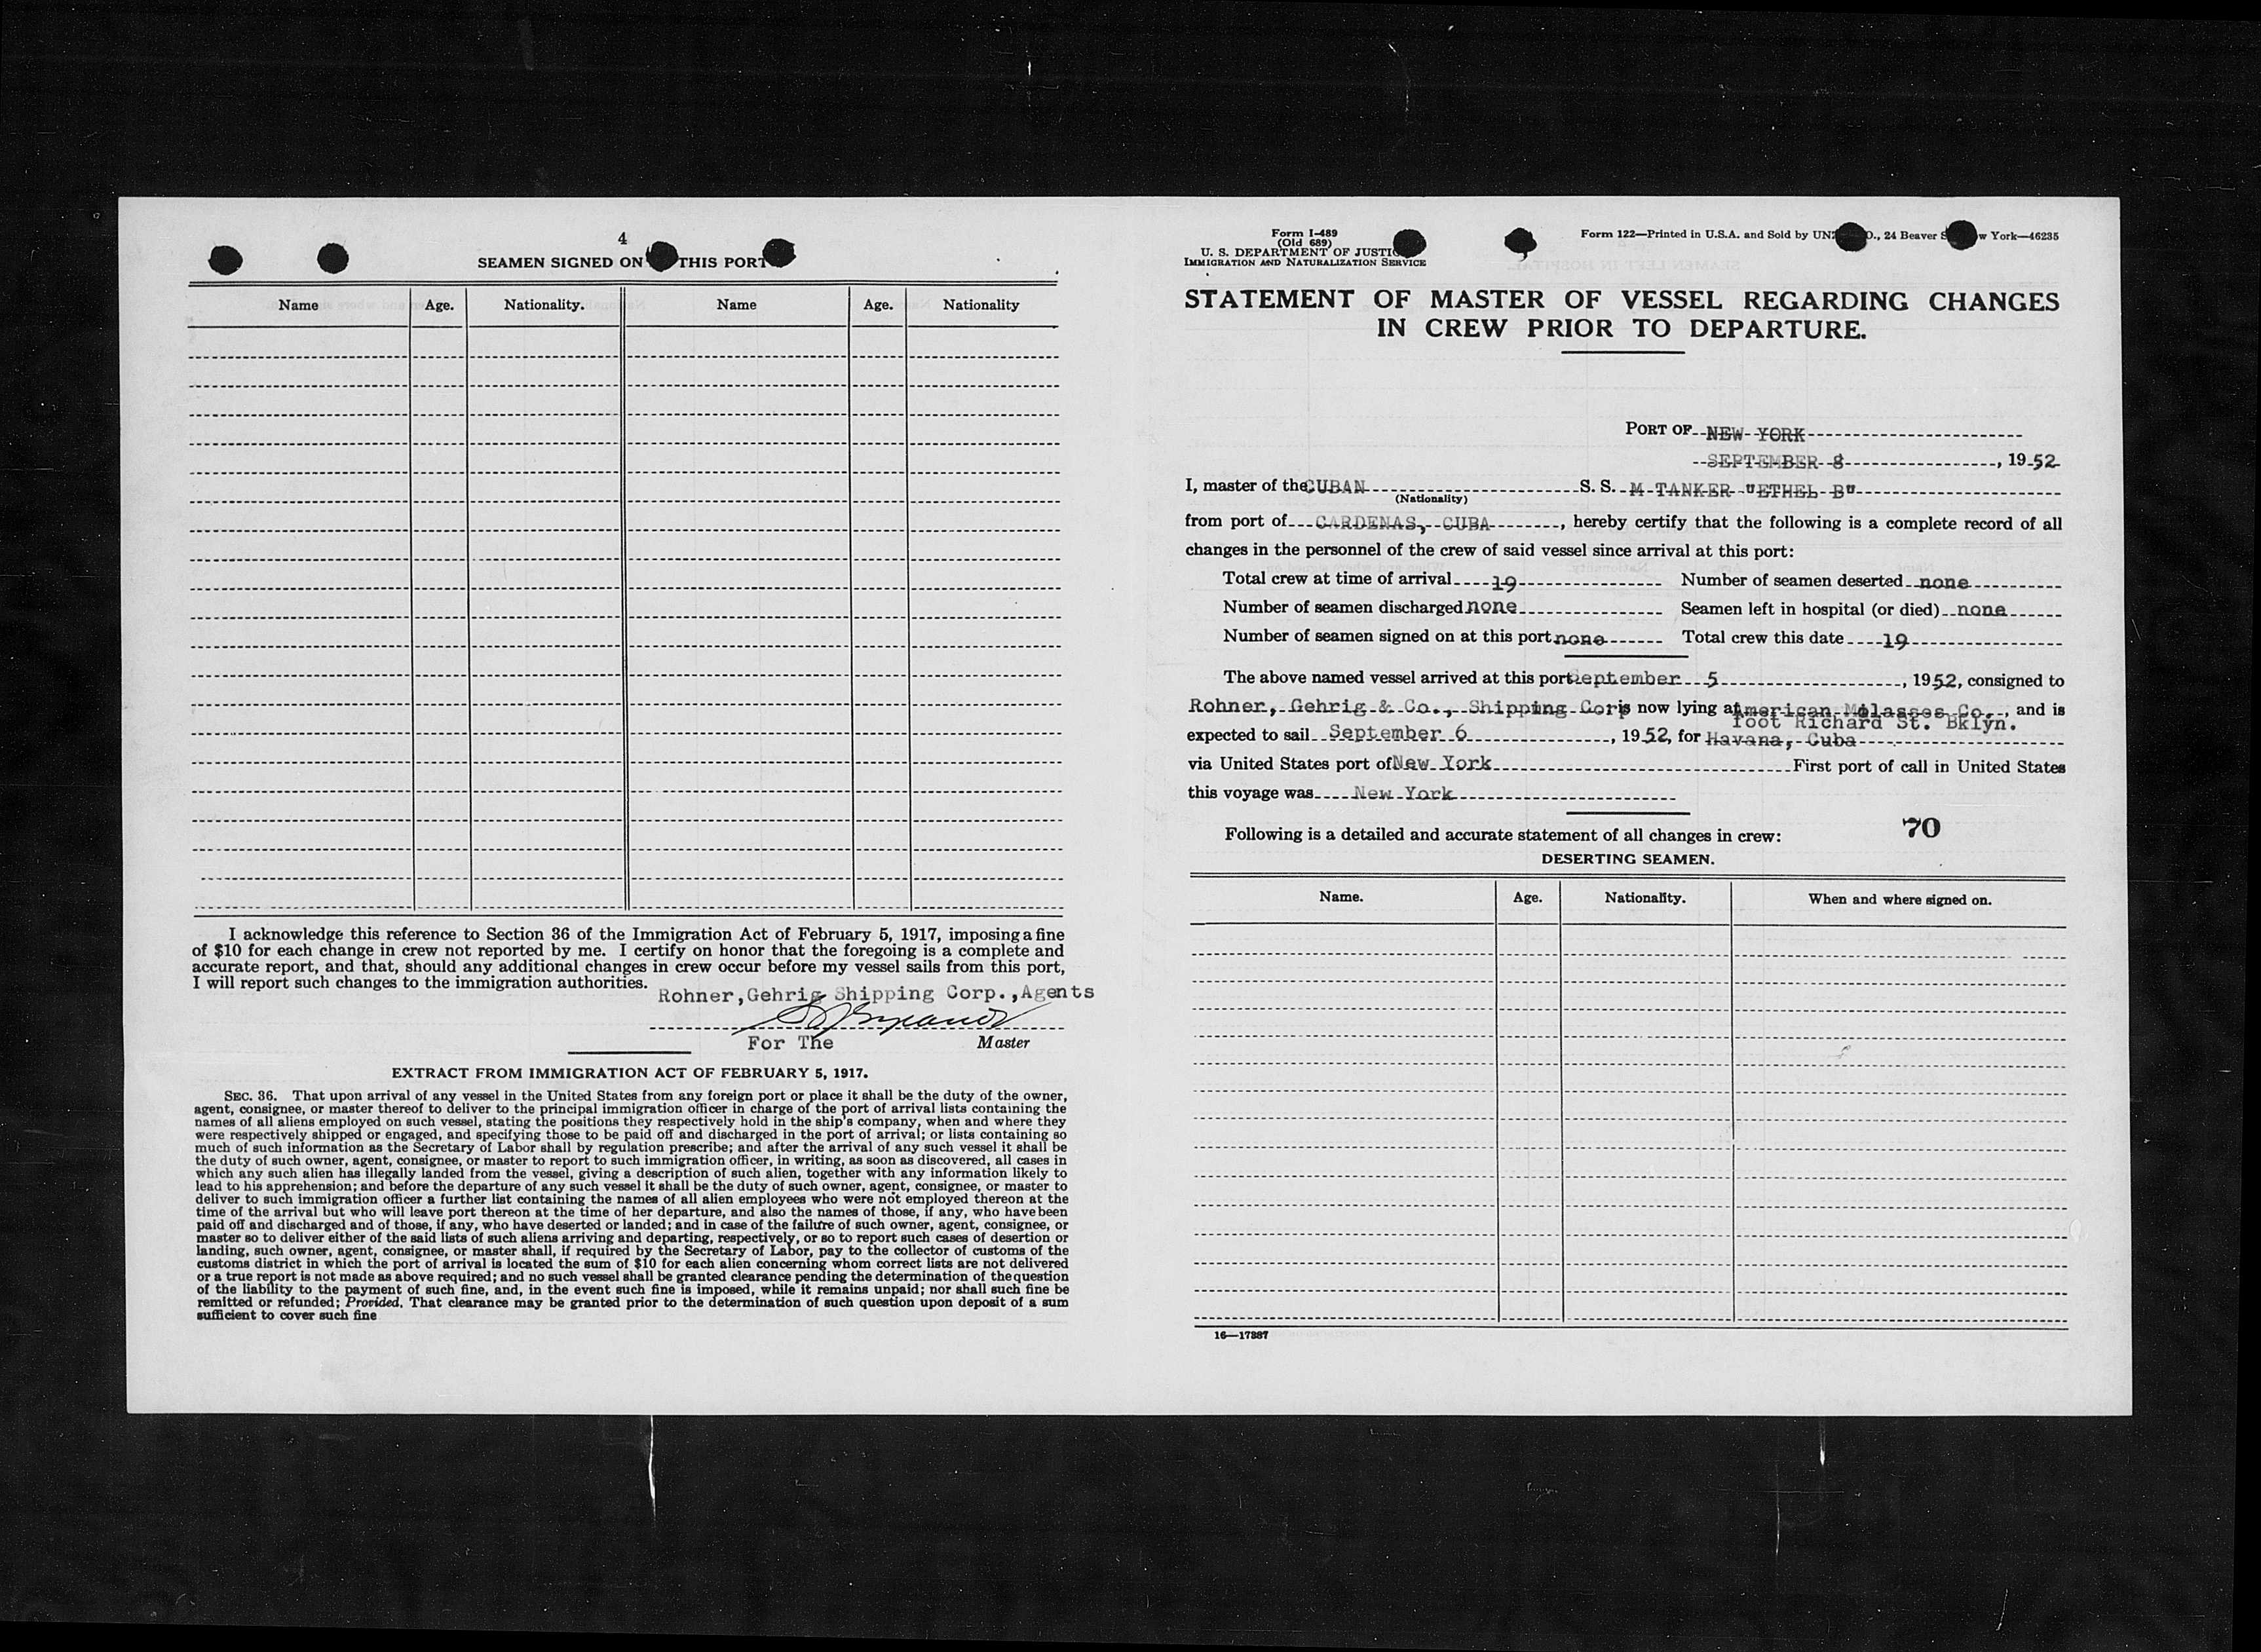 4
SEAMEN SIGNED ON THIS PORT
Name Age. Nationality. Name Age. Nationality
I acknowledge this reference to Section 36 of the Immigration Act of February 5, 1917, imposing a fine
of $10 for each change in crew not reported by me. I certify on honor that the foregoing is a complete and
accurate report, and that, should any additional changes in crew occur before my vessel sails from this port,
I will report such changes to the immigration authorities.
Rohner,Gehrig Shipping Corp.,Agents
For The Master
EXTRACT FROM IMMIGRATION ACT OF FEBRUARY 5, 1917.
SEC. 36. That upon arrival of any vessel in the United States from any foreign port or place it shall be the duty of the owner,
agent, consignee, or master thereof to deliver to the principal immigration officer in charge of the port of arrival lists containing the
names of all aliens employed on such vessel, stating the positions they respectively hold in the ship's company, when and where they
were respectively shipped or engaged, and specifying those to be paid off and discharged in the port of arrival; or lists containing so
much of such information as the Secretary of Labor shall by regulation prescribe; and after the arrival of any such vessel it shall be
the duty of such owner, agent, consignee, or master to report to such immigration officer, in writing, as soon as discovered, all cases in
which any such alien has illegally landed from the vessel, giving a description of such alien, together with any information likely to
lead to his apprehension; and before the departure of any such vessel it shall be the duty of such owner, agent, consignee, or master to
deliver to such immigration officer a further list containing the names of all alien employees who were not employed thereon at the
time of the arrival but who will leave port thereon at the time of her departure, and also the names of those, if any, who have been
paid off and discharged and of those, if any, who have deserted or landed; and in case of the failure of such owner, agent, consignee, or
master so to deliver either of the said lists of such aliens arriving and departing, respectively, or so to report such cases of desertion or
landing, such owner, agent, consignee, or master shall, if required by the Secretary of Labor, pay to the collector of customs of the
customs district in which the port of arrival is located the sum of $10 for each alien concerning whom correct lists are not delivered
or a true report is not made as above required; and no such vessel shall be granted clearance pending the determination of the question
of the liability to the payment of such fine, and, in the event such fine is imposed, while it remains unpaid; nor shall such fine be
remitted or refunded; Provided, That clearance may be granted prior to the determination of such question upon deposit of a sum
sufficient to cover such fine
Form I-489
(Old 689)
U. S. DEPARTMENT OF JUSTIC
IMMIGRATION AND NATURALIZATION SERVICE
Form 122—Printed in U.S.A. and Sold by UNZ O., 24 Beaver S w York—46235
STATEMENT OF MASTER OF VESSEL REGARDING CHANGES
IN CREW PRIOR TO DEPARTURE.
PORT OF NEW YORK
SEPTEMBER 8, 1952
I, master of the CUBAN S. S. M TANKER "ETHEL B"
(Nationality)
from port of CARDENAS, CUBA, hereby certify that the following is a complete record of all
changes in the personnel of the crew of said vessel since arrival at this port:
Total crew at time of arrival 19 Number of seamen deserted none
Number of seamen discharged none Seamen left in hospital (or died) none
Number of seamen signed on at this port none Total crew this date 19
The above named vessel arrived at this port September 5, 1952, consigned to
Rohner, Gehrig & Co., Shipping Corp is now lying at American Molasses Co., and is
foot Richard St. Bklyn.
expected to sail September 6, 1952, for Havana, Cuba
via United States port of New York First port of call in United States
this voyage was New York
70
Following is a detailed and accurate statement of all changes in crew:
DESERTING SEAMEN.
Name. Age. Nationality. When and where signed on.
16—17387